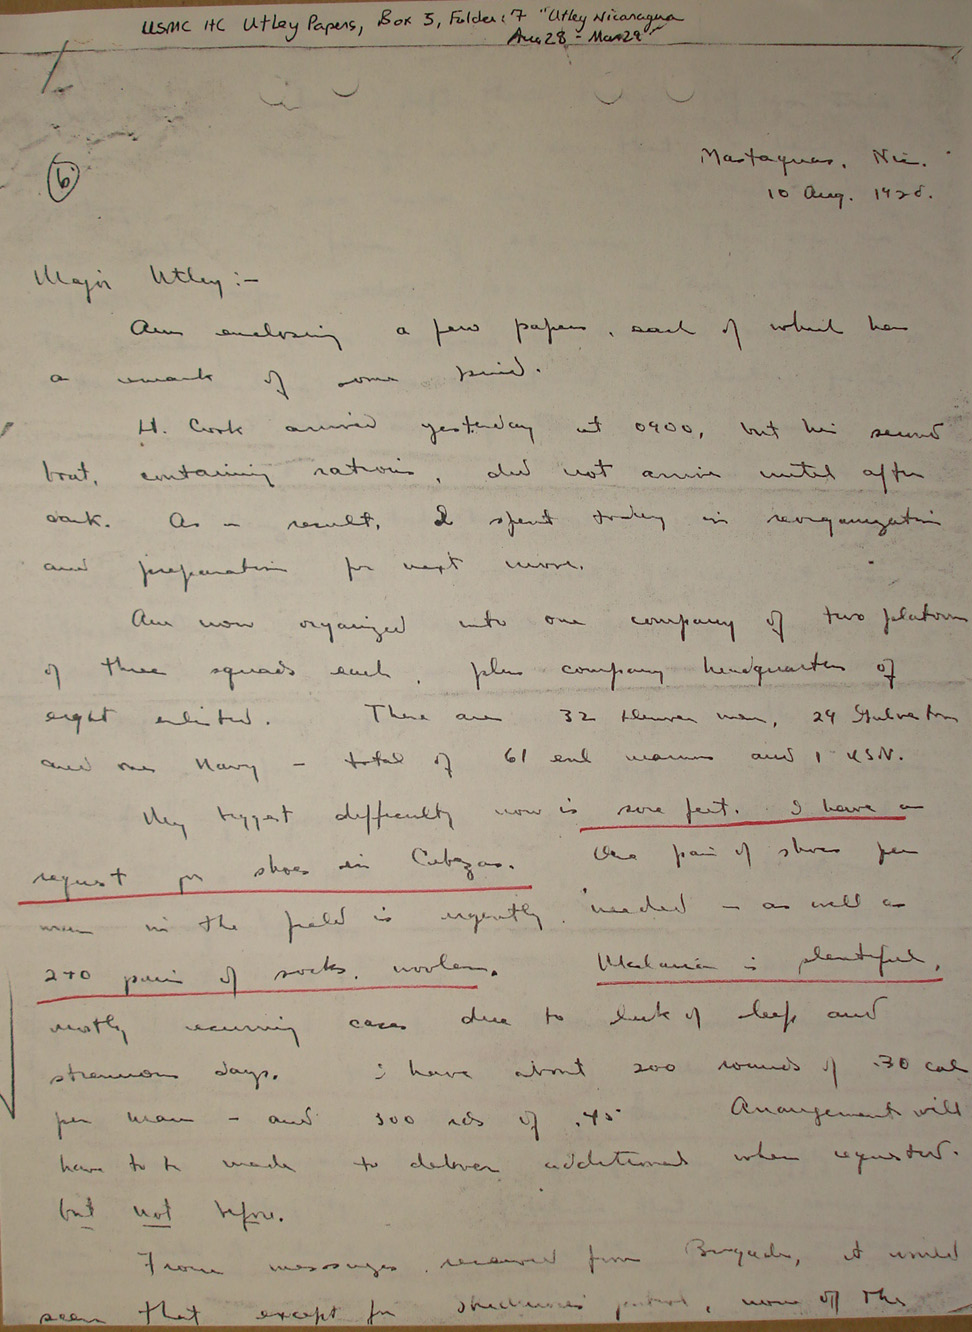 USMC HC Utley Papers, Box 5, Folder: 7 "Utley Nicaragua
Aug 28 - Mar 29"
6
Mastaguas, Nic.
10 Aug. 1928.
Major Utley:-
Am enclosing a few papers, each of which has
a remark of some kind.
H. Cook arrived yesterday at 0900, but his second
boat, containing rations, did not arrive until after
dark. As a result, I spent today in reorganization
and preparation for next move.
Am now organized into one company of two platoons
of three squads each, plus company headquarters of
eight enlisted. There are 32 Denver men, 29 Galveston
and one Navy - total of 61 enl marines and 1 USN.
My biggest difficulty now is sore feet. I have a
request for shoes in Cabezas. One pair of shoes per
man in the field is urgently needed - as well as
240 pair of socks, woolen. Malaria is plentiful,
mostly recurring cases due to lack of sleep and
strenuous days. I have about 200 rounds of .30 cal
per man - and 300 rds of .45 Arrangements will
have to be made to deliver additional when requested.
but not before.
From messages received from Brigade, it would
seem that except for patrol, none of the